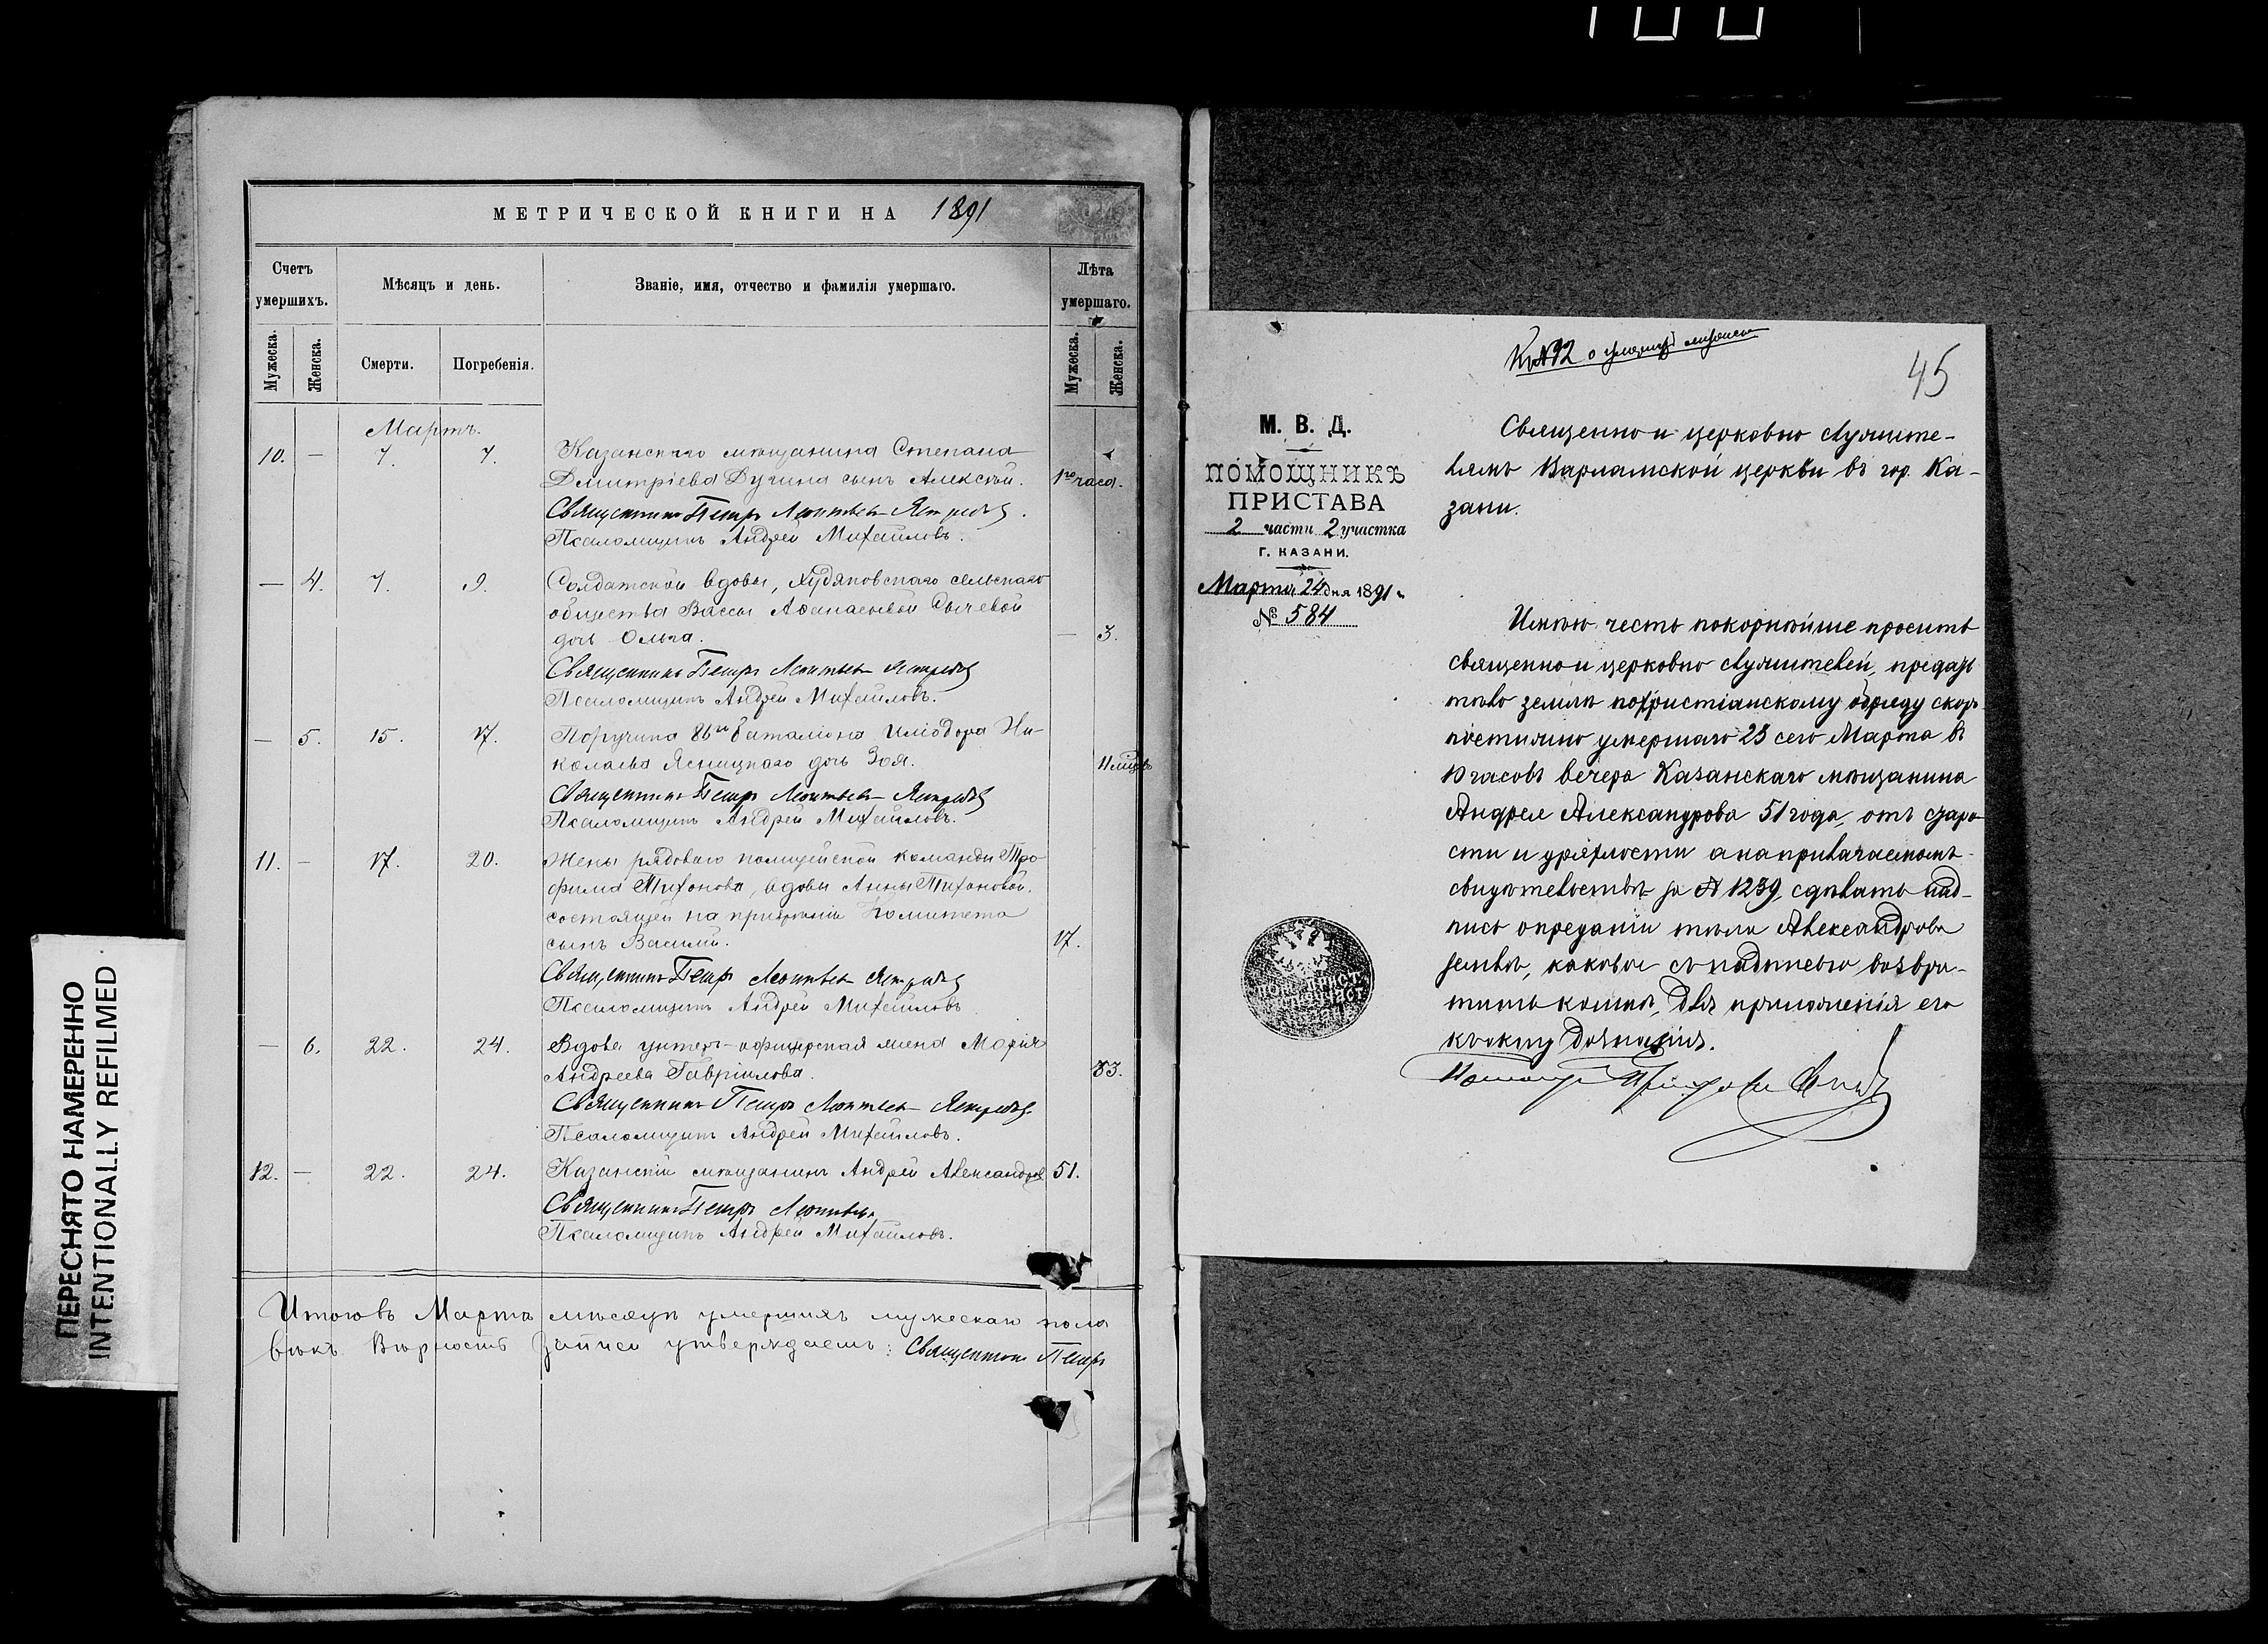 ПЕРЕСНЯТО НАМЕРЕННО
INTENTIONALLY REFILMED
МЕТРИЧЕСКОЙ КНИГИ НА 1891
Счетъ умершихъ.
Мѣсяцъ и день.
Званіе, имя, отчество и фамилія умершаго.
Лѣта умершаго.
Мужеска.
Женска.
Смерти.
Погребенія.
Мужеска.
Женска.
Мартъ.
10. — 7. 7. Казанскаго мѣщанина Степана
Дмитріева сынъ Алексѣй. часа.
Священникъ Петръ Леонтьевъ
Псаломщикъ Андрей Михайловъ.
— 4. 7. 9. Солдатской вдовы, Худяковскаго сельскаго
общества Вассы Аѳанасьевой Сычевой
дочь Ольга. — 3.
Священникъ Петръ Леонтьевъ
Псаломщикъ Андрей Михайловъ.
— 5. 15. 17. Поручика 86го баталіона Иліодора Ни-
колаева Ясницкаго дочь Зоя. 11 мѣс.
Священникъ Петръ Леонтьевъ
Псаломщикъ Андрей Михайловъ.
11. — 17. 20. Жены рядоваго полицейской команды Тро-
фима Тихонова, вдовы Анны Тихоновой,
состоящей на призрѣніи Комитета
сынъ Василій. 17.
Священникъ Петръ Леонтьевъ
Псаломщикъ Андрей Михайловъ
— 6. 22. 24. Вдова унтеръ-офицерская жена Марія
Андреева Гаврилова. 83.
Священникъ Петръ Леонтьевъ
Псаломщикъ Андрей Михайловъ.
12. — 22. 24. Казанскій мѣщанинъ Андрей Александровъ 51.
Священникъ Петръ Леонтьевъ
Псаломщикъ Андрей Михайловъ.
Итого въ Мартѣ мѣсяцѣ умершихъ мужескаго пола
вѣкъ. Вѣрность записи утверждаемъ: Священникъ Петръ
45
М. В. Д.
ПОМОЩНИКЪ
ПРИСТАВА
2 части 2 участка
Г. КАЗАНИ.
Марта 24 дня 1891 г.
№ 584
Священно и церковно служите-
лямъ Варламской церкви въ гор. Ка-
зани.
Имѣю честь покорнѣйше просить
священно и церковно служителей, предать
тѣло землѣ по христіанскому обряду скоро-
постижно умершаго 23 сего Марта въ
10 часовъ вечера Казанскаго мѣщанина
Андрея Александрова 51 года, отъ старо-
сти и дряхлости а на прилагаемомъ
свидѣтельствѣ за № 1239, сдѣлать над-
пись о преданіи тѣла Александрова
землѣ, каковое съ надписью возвра-
тить ко мнѣ, для приложенія его
къ акту дознанія.